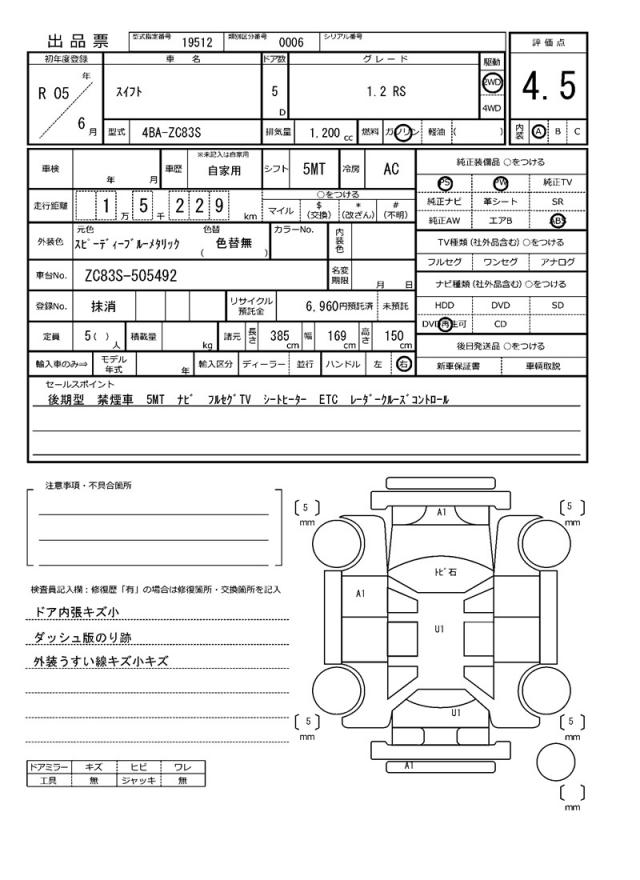 出品票 型式指定番号 19512 類別区分番号 0006 シリアル番号
評価点
4.5
内装 A B C
初年度登録 車名 ドア数 グレード 駆動
R 05 年 6 月 スイフト 5 D 1.2 RS 2WD 4WD
型式 4BA-ZC83S 排気量 1,200 cc 燃料 ガソリン 軽油 ( )
車検 年 月 車歴 ※未記入は自家用 自家用 シフト 5MT 冷房 AC
走行距離 1 万 5 千 2 2 9 km ○をつける
マイル $(交換) *(改ざん) #(不明)
外装色 元色 スピーディーブルーメタリック 色替 ( 色替無 ) カラーNo. 内装色
車台No. ZC83S-505492 名変期限 月 日
登録No. 抹消 リサイクル預託金 6,960円預託済 未預託
定員 5( )人 積載量 kg 諸元 長さ 385 cm 幅 169 cm 高さ 150 cm
輸入車のみ⇒ モデル年式 年 輸入区分 ディーラー 並行 ハンドル 左 右
純正装備品 ○をつける
PS PW 純正TV
純正ナビ 革シート SR
純正AW エアB ABS
TV種類 (社外品含む) ○をつける
フルセグ ワンセグ アナログ
ナビ種類 (社外品含む) ○をつける
HDD DVD SD
DVD再生可 CD
後日発送品 ○をつける
新車保証書 車輌取説
セールスポイント
後期型 禁煙車 5MT ナビ フルセグTV シートヒーター ETC レーダークルーズコントロール
注意事項・不具合箇所
検査員記入欄：修復歴「有」の場合は修復箇所・交換箇所を記入
ドア内張キズ小
ダッシュ版のり跡
外装うすい線キズ小キズ
ドアミラー キズ ヒビ ワレ
工具 無 ジャッキ 無
[ 5 ] mm
A1
[ 5 ] mm
トビ石
A1
U1
U1
[ 5 ] mm
[ 5 ] mm
A1
[ ] mm